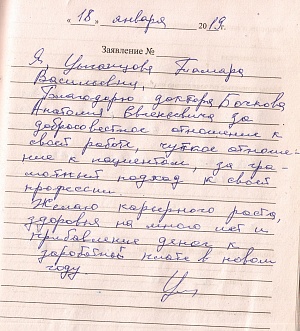 « 18 » января 2019г.
Заявление №
Я, Цыганцова Тамара
Васильевна,
Благодарю доктора Бочкова
Анатолия Евгеневича за
добросовестное отношение к
своей работе, чуткое отноше-
ние к пациентам, за гра-
мотный подход к своей
профессии.
Желаю карьерного роста,
здоровья на много лет и
прибавление денег к
заработной плате в новом
году.